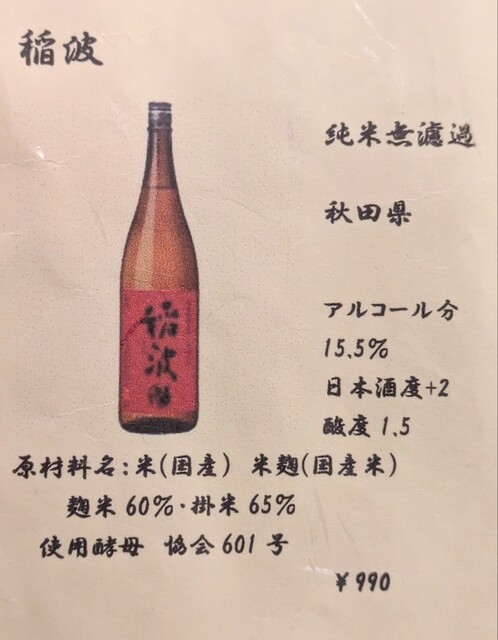 稲波
純米無濾過
秋田県
稲波
アルコール分
15.5%
日本酒度+2
酸度 1.5
原材料名：米(国産) 米麹(国産米)
麹米 60%・掛米 65%
使用酵母 協会 601 号
¥990